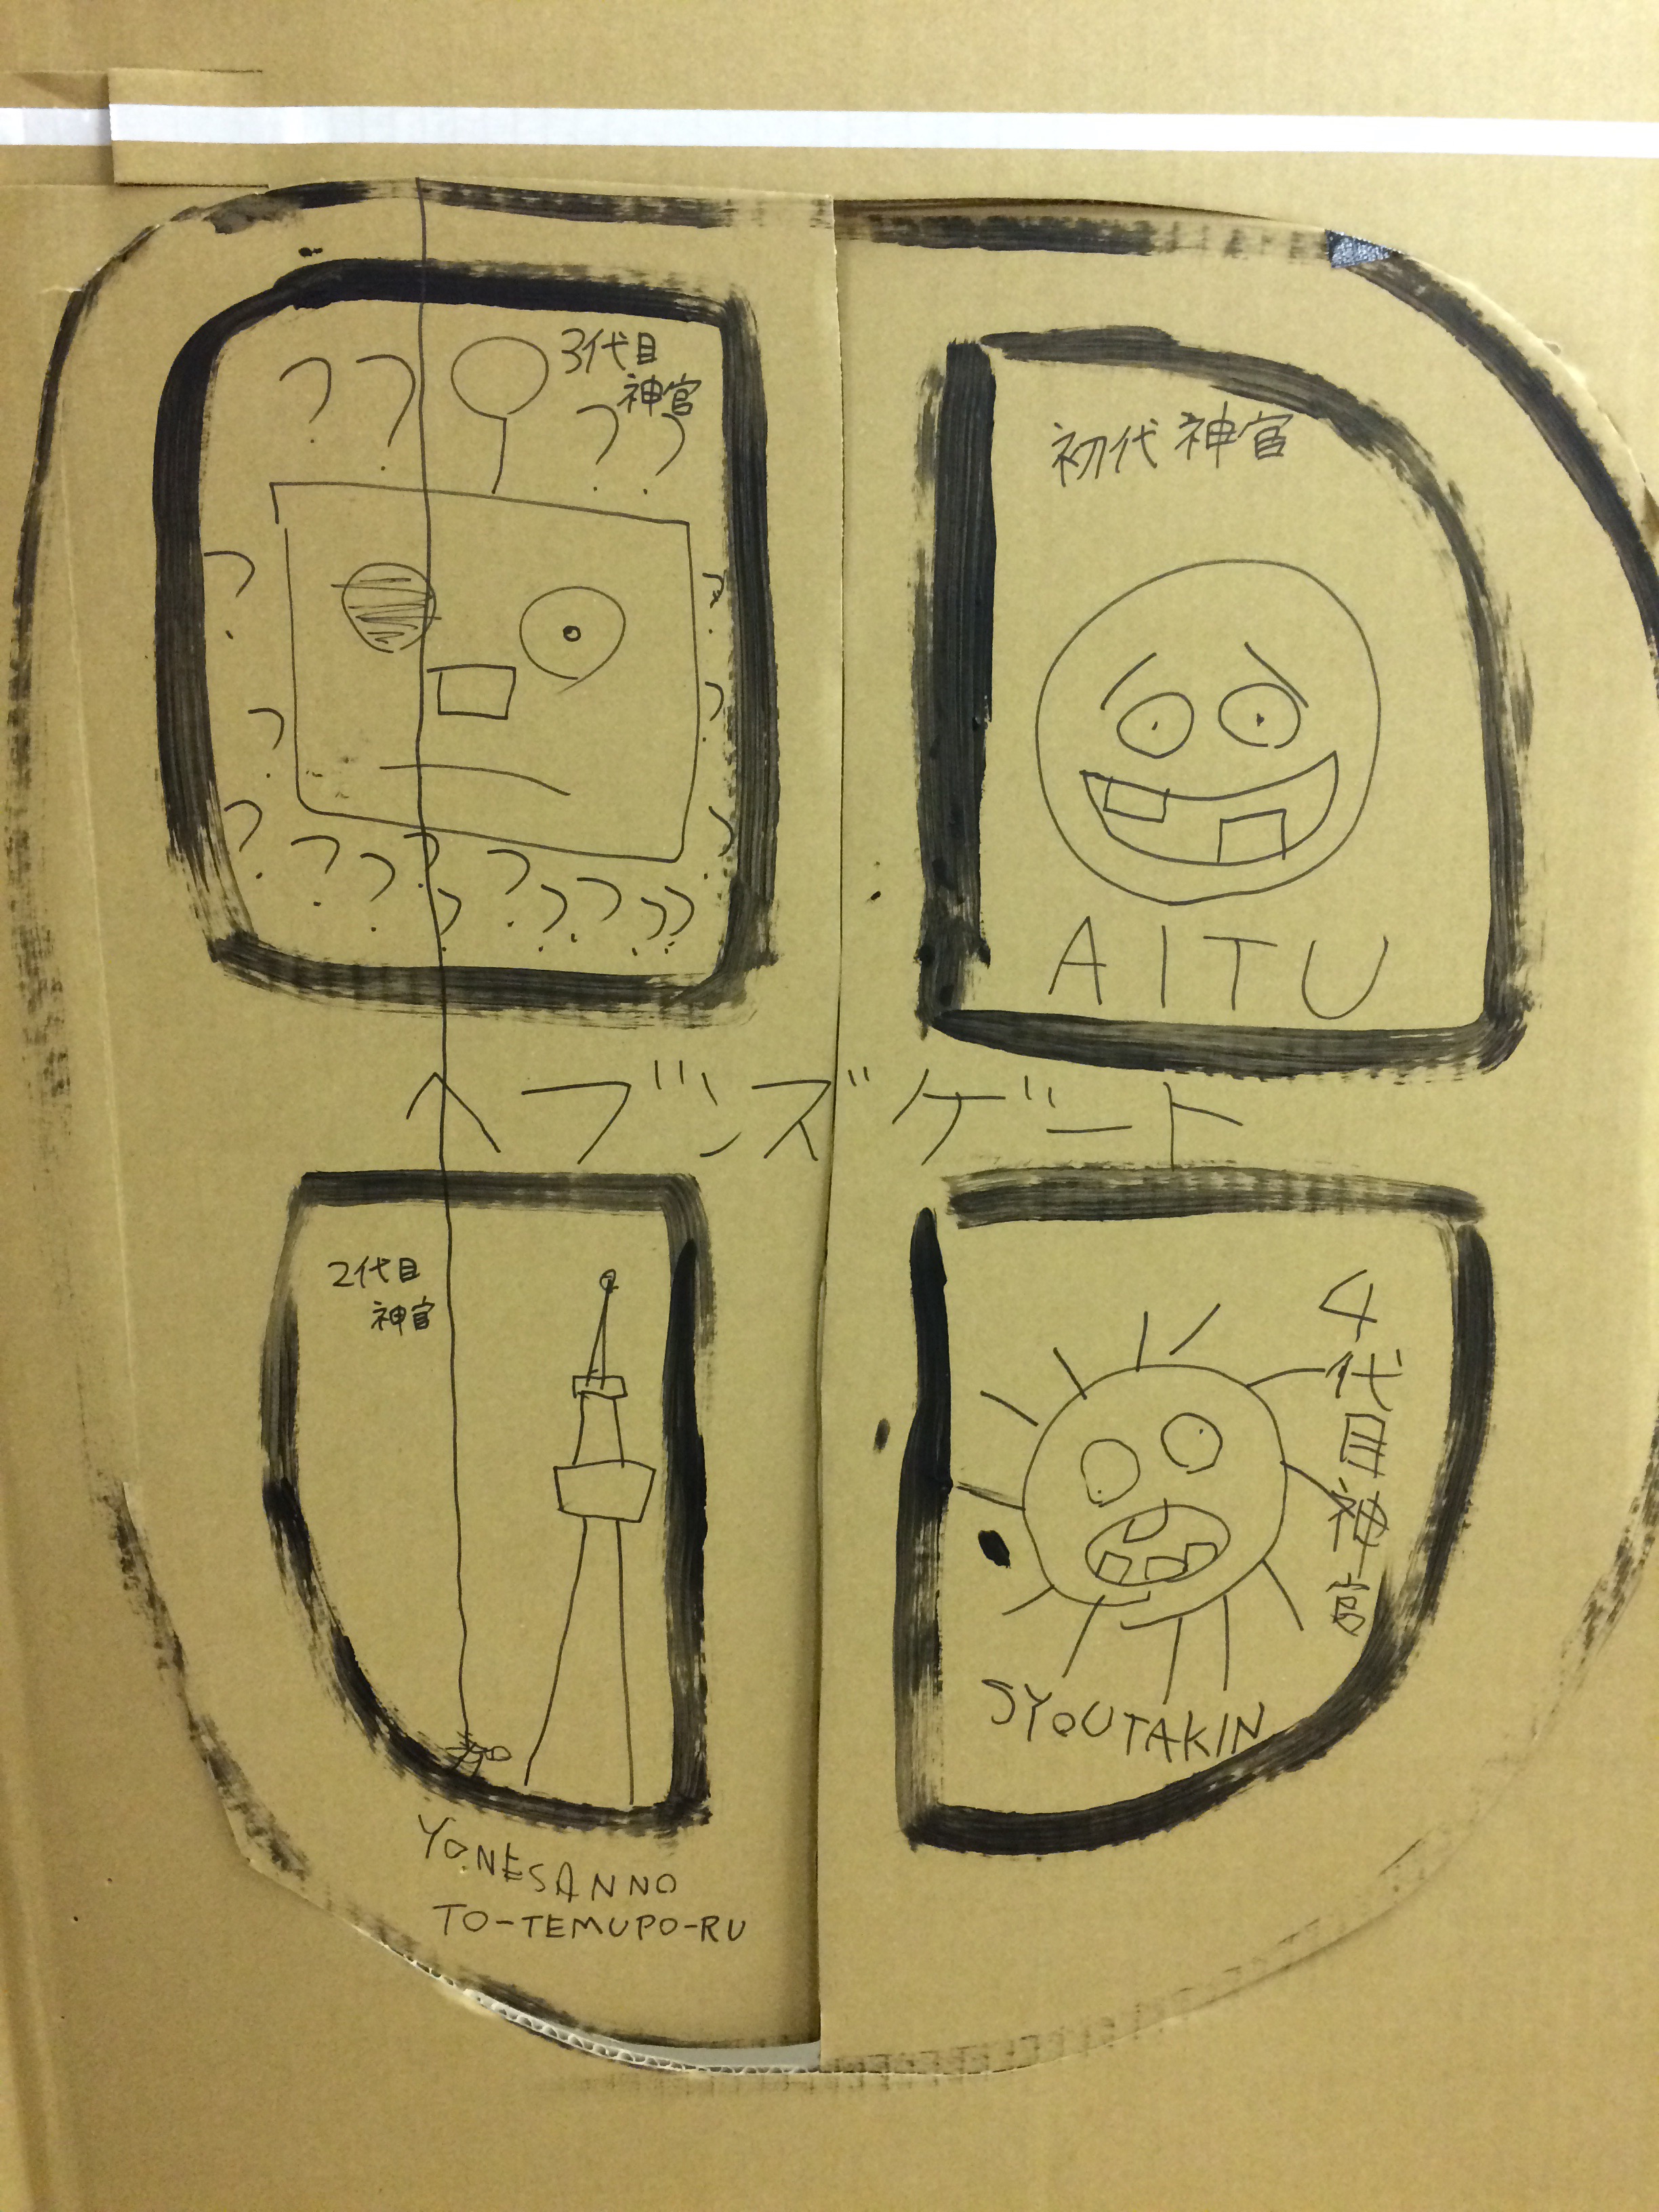 3代目
神官
初代神官
AITU
ヘブンズゲート
2代目
神官
4代目神官
SYOUTAKIN
YONESANNO
TO-TEMUPO-RU